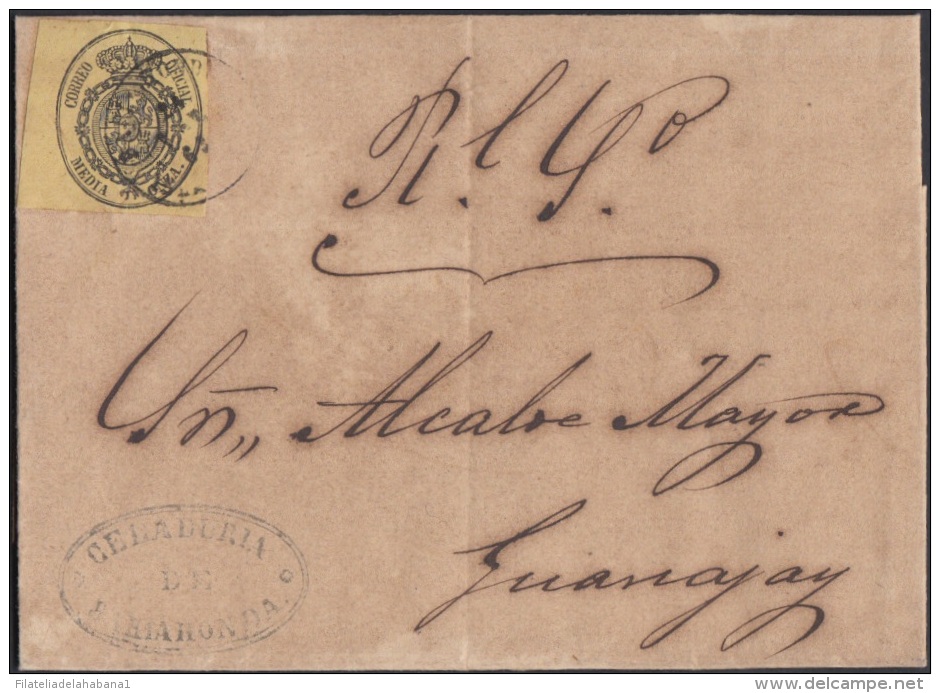 CORREO OFICIAL
MEDIA ONZA.
Rl. So.
Sr. Alcalde Mayor
Guanajay
CELADURIA
DE
BAHIAHONDA.
Filateliadelahabana1
delcampe.net